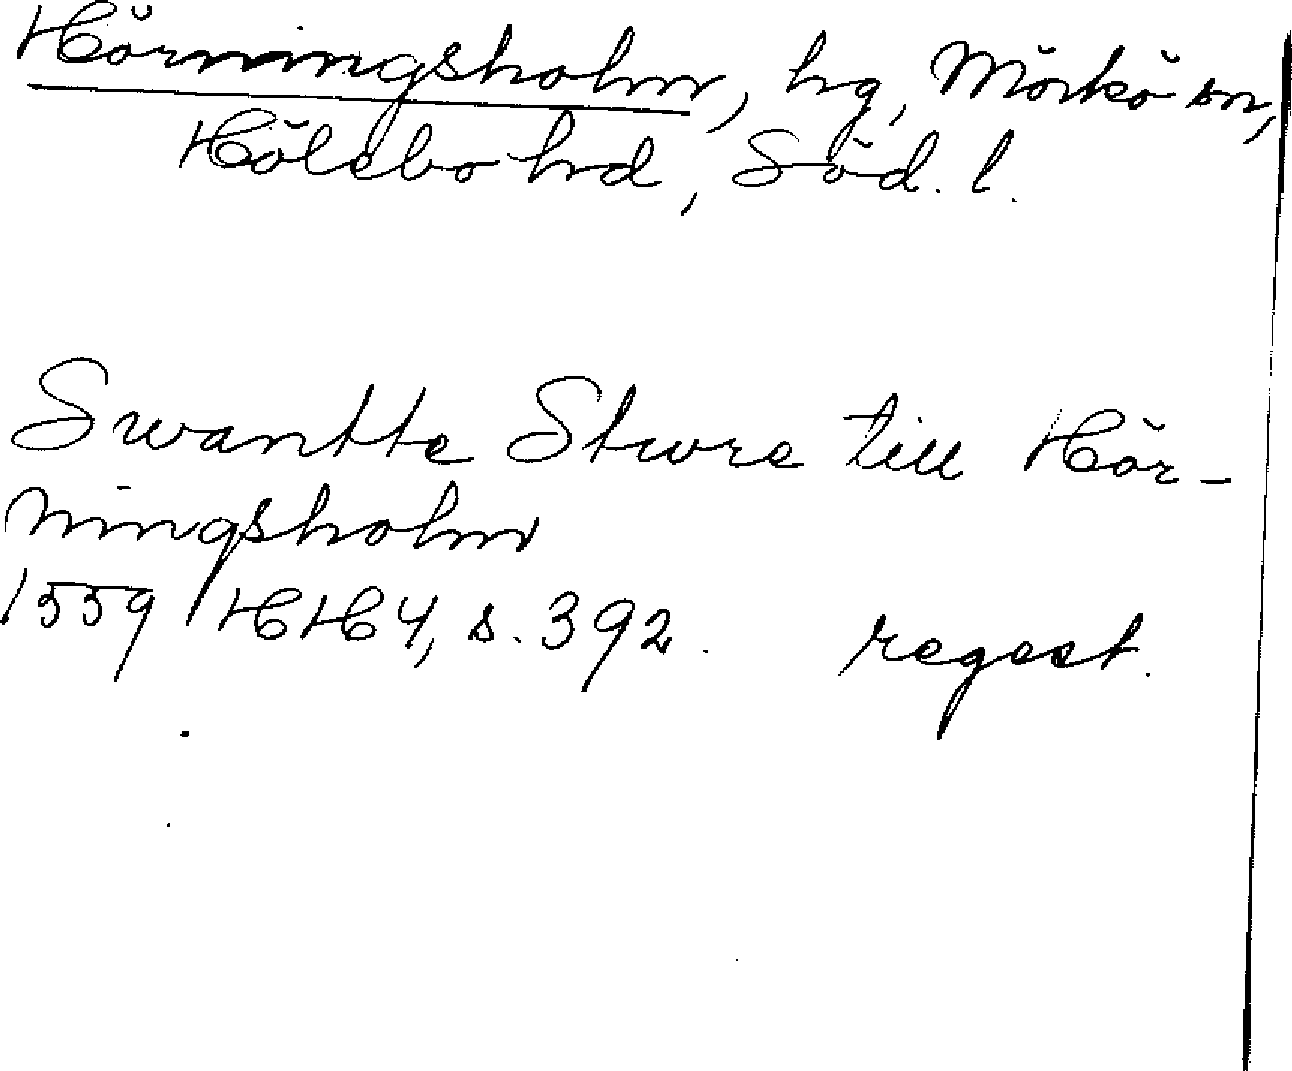 Hörningsholm, hg, Mörkö sn,
Hölebo hd, Söd. l.
Swantte Stwre till Hör-
ningsholm
1559 HH 4, s. 392. regest.